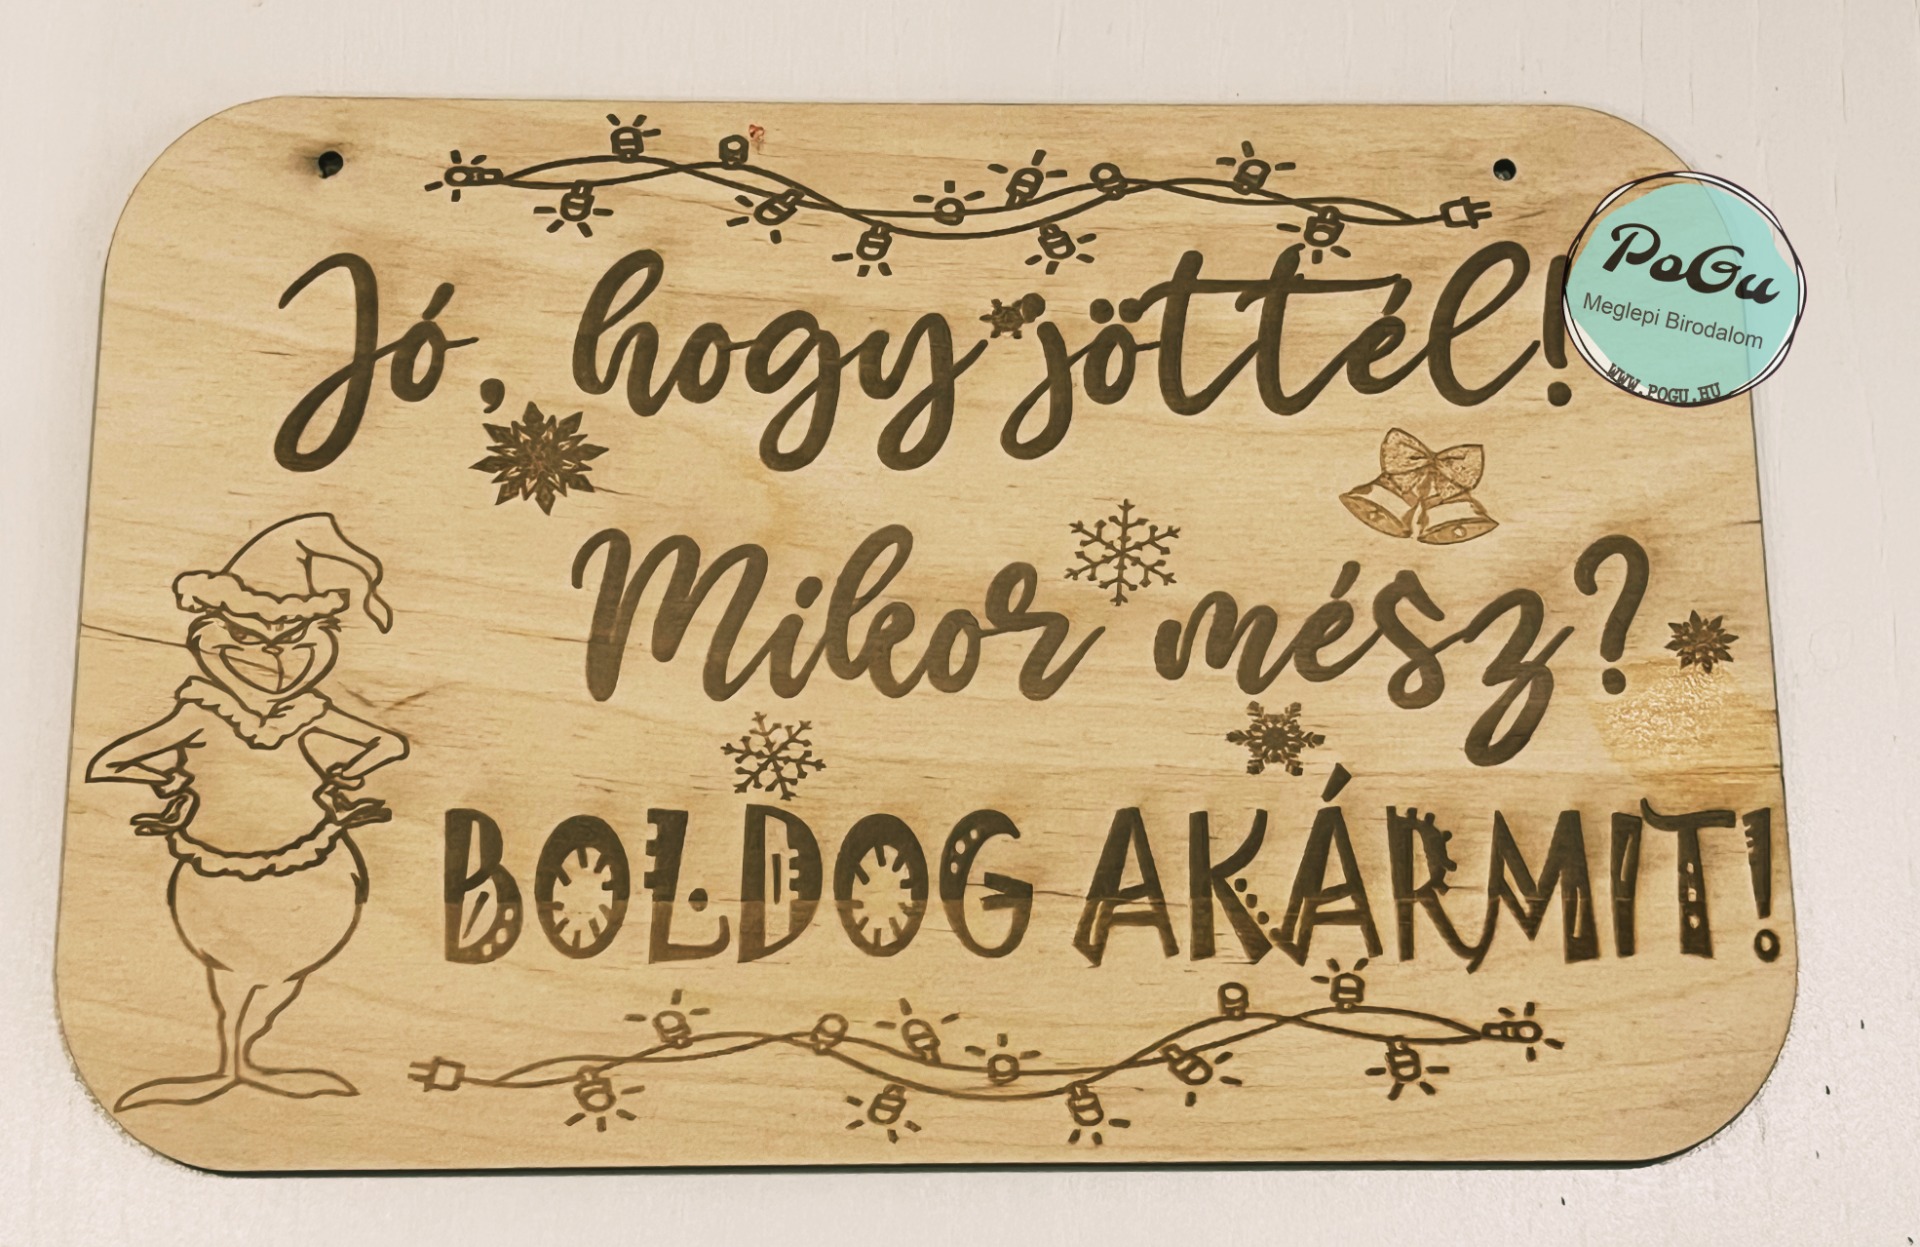 Jó, hogy jöttél!
PoGu
Meglepi Birodalom
WWW.POGU.HU
Mikor mész?
BOLDOG AKÁRMIT!